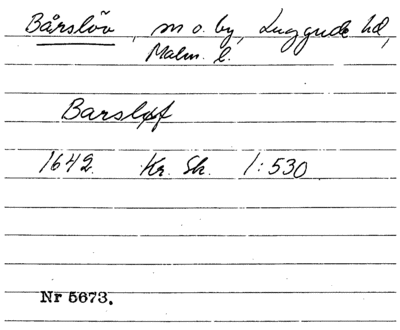 Bårslöv, sn o. by, Luggude hd,
Malm. l.
Barsløf
1642. Kr. Sk. 1:530
Nr 5673.